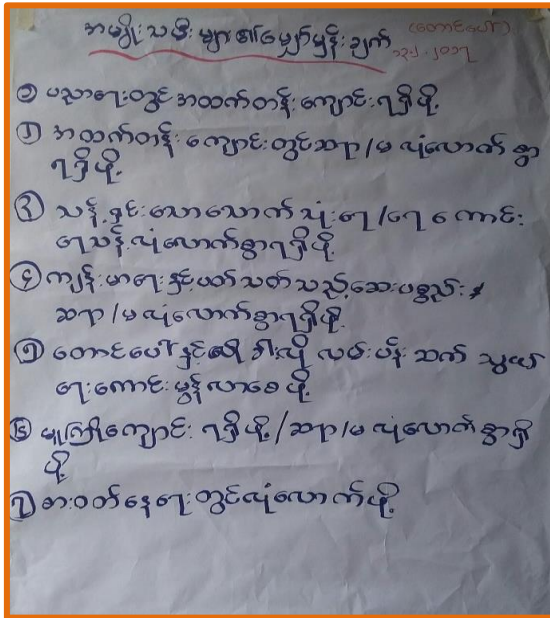 အမျိုးသမီးများ၏မျှော်မှန်းချက် (တောင်ပေါ်)
၁ ပညာရေးတွင် အထက်တန်းကျောင်းရရှိဖို့
၂ အထက်တန်းကျောင်းတွင်ဆရာ/မ လုံလောက်စွာ
ရရှိဖို့
၃ သန့်ရှင်းသောသောက်သုံးရေ/ရေကောင်း
ရေသန့်လုံလောက်စွာရရှိဖို့
၄ ကျန်းမာရေးနှင့်ပတ်သတ်သည့်ဆေးပစ္စည်း
ဆရာ/မ လုံလောက်စွာရရှိဖို့
၅ တောင်ပေါ်နှင့် လမ်းပန်းဆက်သွယ်
ရေးကောင်းမွန်လာစေဖို့
၆ မူကြိုကျောင်းရရှိဖို့/ဆရာ/မ လုံလောက်စွာရှိ
ဖို့
၇ စားဝတ်နေရေးတွင်လုံလောက်ဖို့